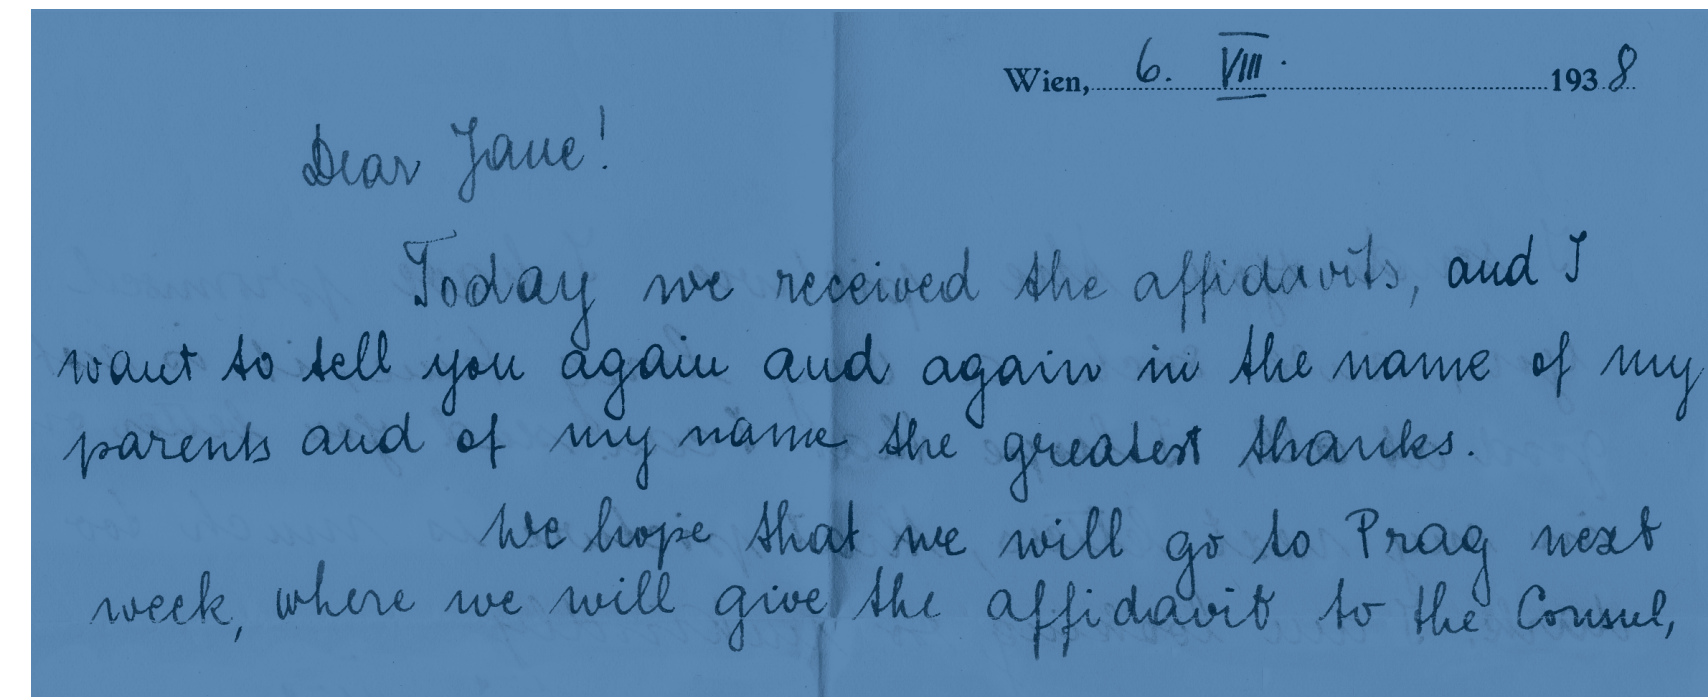 Wien, 6. VIII. 1938
Dear Jane!
Today we received the affidavits, and I
want to tell you again and again in the name of my
parents and of my name the greatest thanks.
We hope that we will go to Prag next
week, where we will give the affidavit to the Consul,